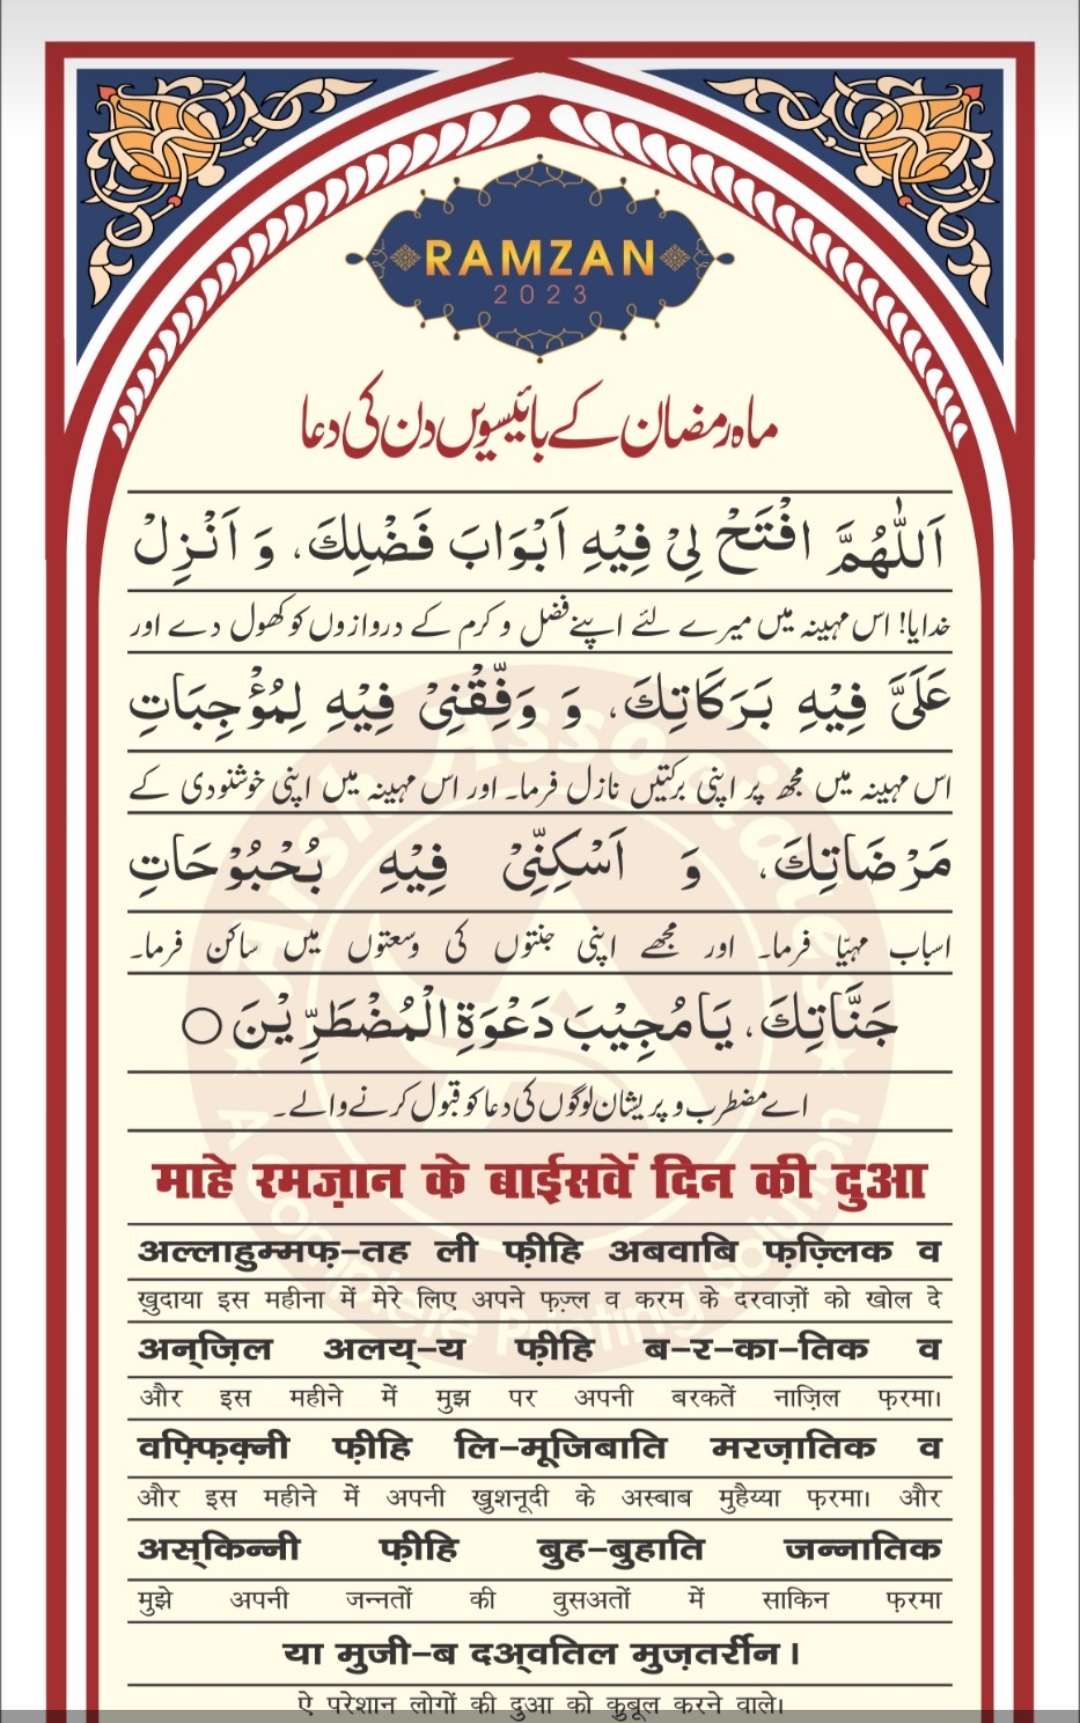 RAMZAN
2023
ماہ رمضان کے بائیسویں دن کی دعا
اَللّٰهُمَّ افْتَحْ لِيْ فِيْهِ اَبْوَابَ فَضْلِكَ، وَ اَنْزِلْ
خدایا! اس مہینہ میں میرے لئے اپنے فضل و کرم کے دروازوں کو کھول دے اور
عَلَیَّ فِيْهِ بَرَكَاتِكَ، وَ وَفِّقْنِيْ فِيْهِ لِمُوْجِبَاتِ
اس مہینہ میں مجھ پر اپنی برکتیں نازل فرما۔ اور اس مہینہ میں اپنی خوشنودی کے
مَرْضَاتِكَ، وَ اَسْكِنِّيْ فِيْهِ بُحْبُوْحَاتِ
اسباب مہیّا فرما۔ اور مجھے اپنی جنتوں کی وسعتوں میں ساکن فرما۔
جَنَّاتِكَ، يَا مُجِيْبَ دَعْوَةِ الْمُضْطَرِّيْنَ ○
اے مضطرب و پریشان لوگوں کی دعا کو قبول کرنے والے۔
माहे रमज़ान के बाईसवें दिन की दुआ
अल्लाहुम्मफ़-तह ली फ़ीहि अबवाबि फ़ज़्लिक व
ख़ुदाया इस महीना में मेरे लिए अपने फ़ज़्ल व करम के दरवाज़ों को खोल दे
अन्ज़िल अलय्-य फ़ीहि ब-र-का-तिक व
और इस महीने में मुझ पर अपनी बरकतें नाज़िल फ़रमा।
वफ़्फ़िक़्नी फ़ीहि लि-मूजिबाति मरज़ातिक व
और इस महीने में अपनी ख़ुशनूदी के अस्बाब मुहैय्या फ़रमा। और
अस्किन्नी फ़ीहि बुह-बुहाति जन्नातिक
मुझे अपनी जन्नतों की वुसअतों में साकिन फ़रमा
या मुजी-ब दअ्वतिल मुज़तर्रीन।
ऐ परेशान लोगों की दुआ को क़ुबूल करने वाले।